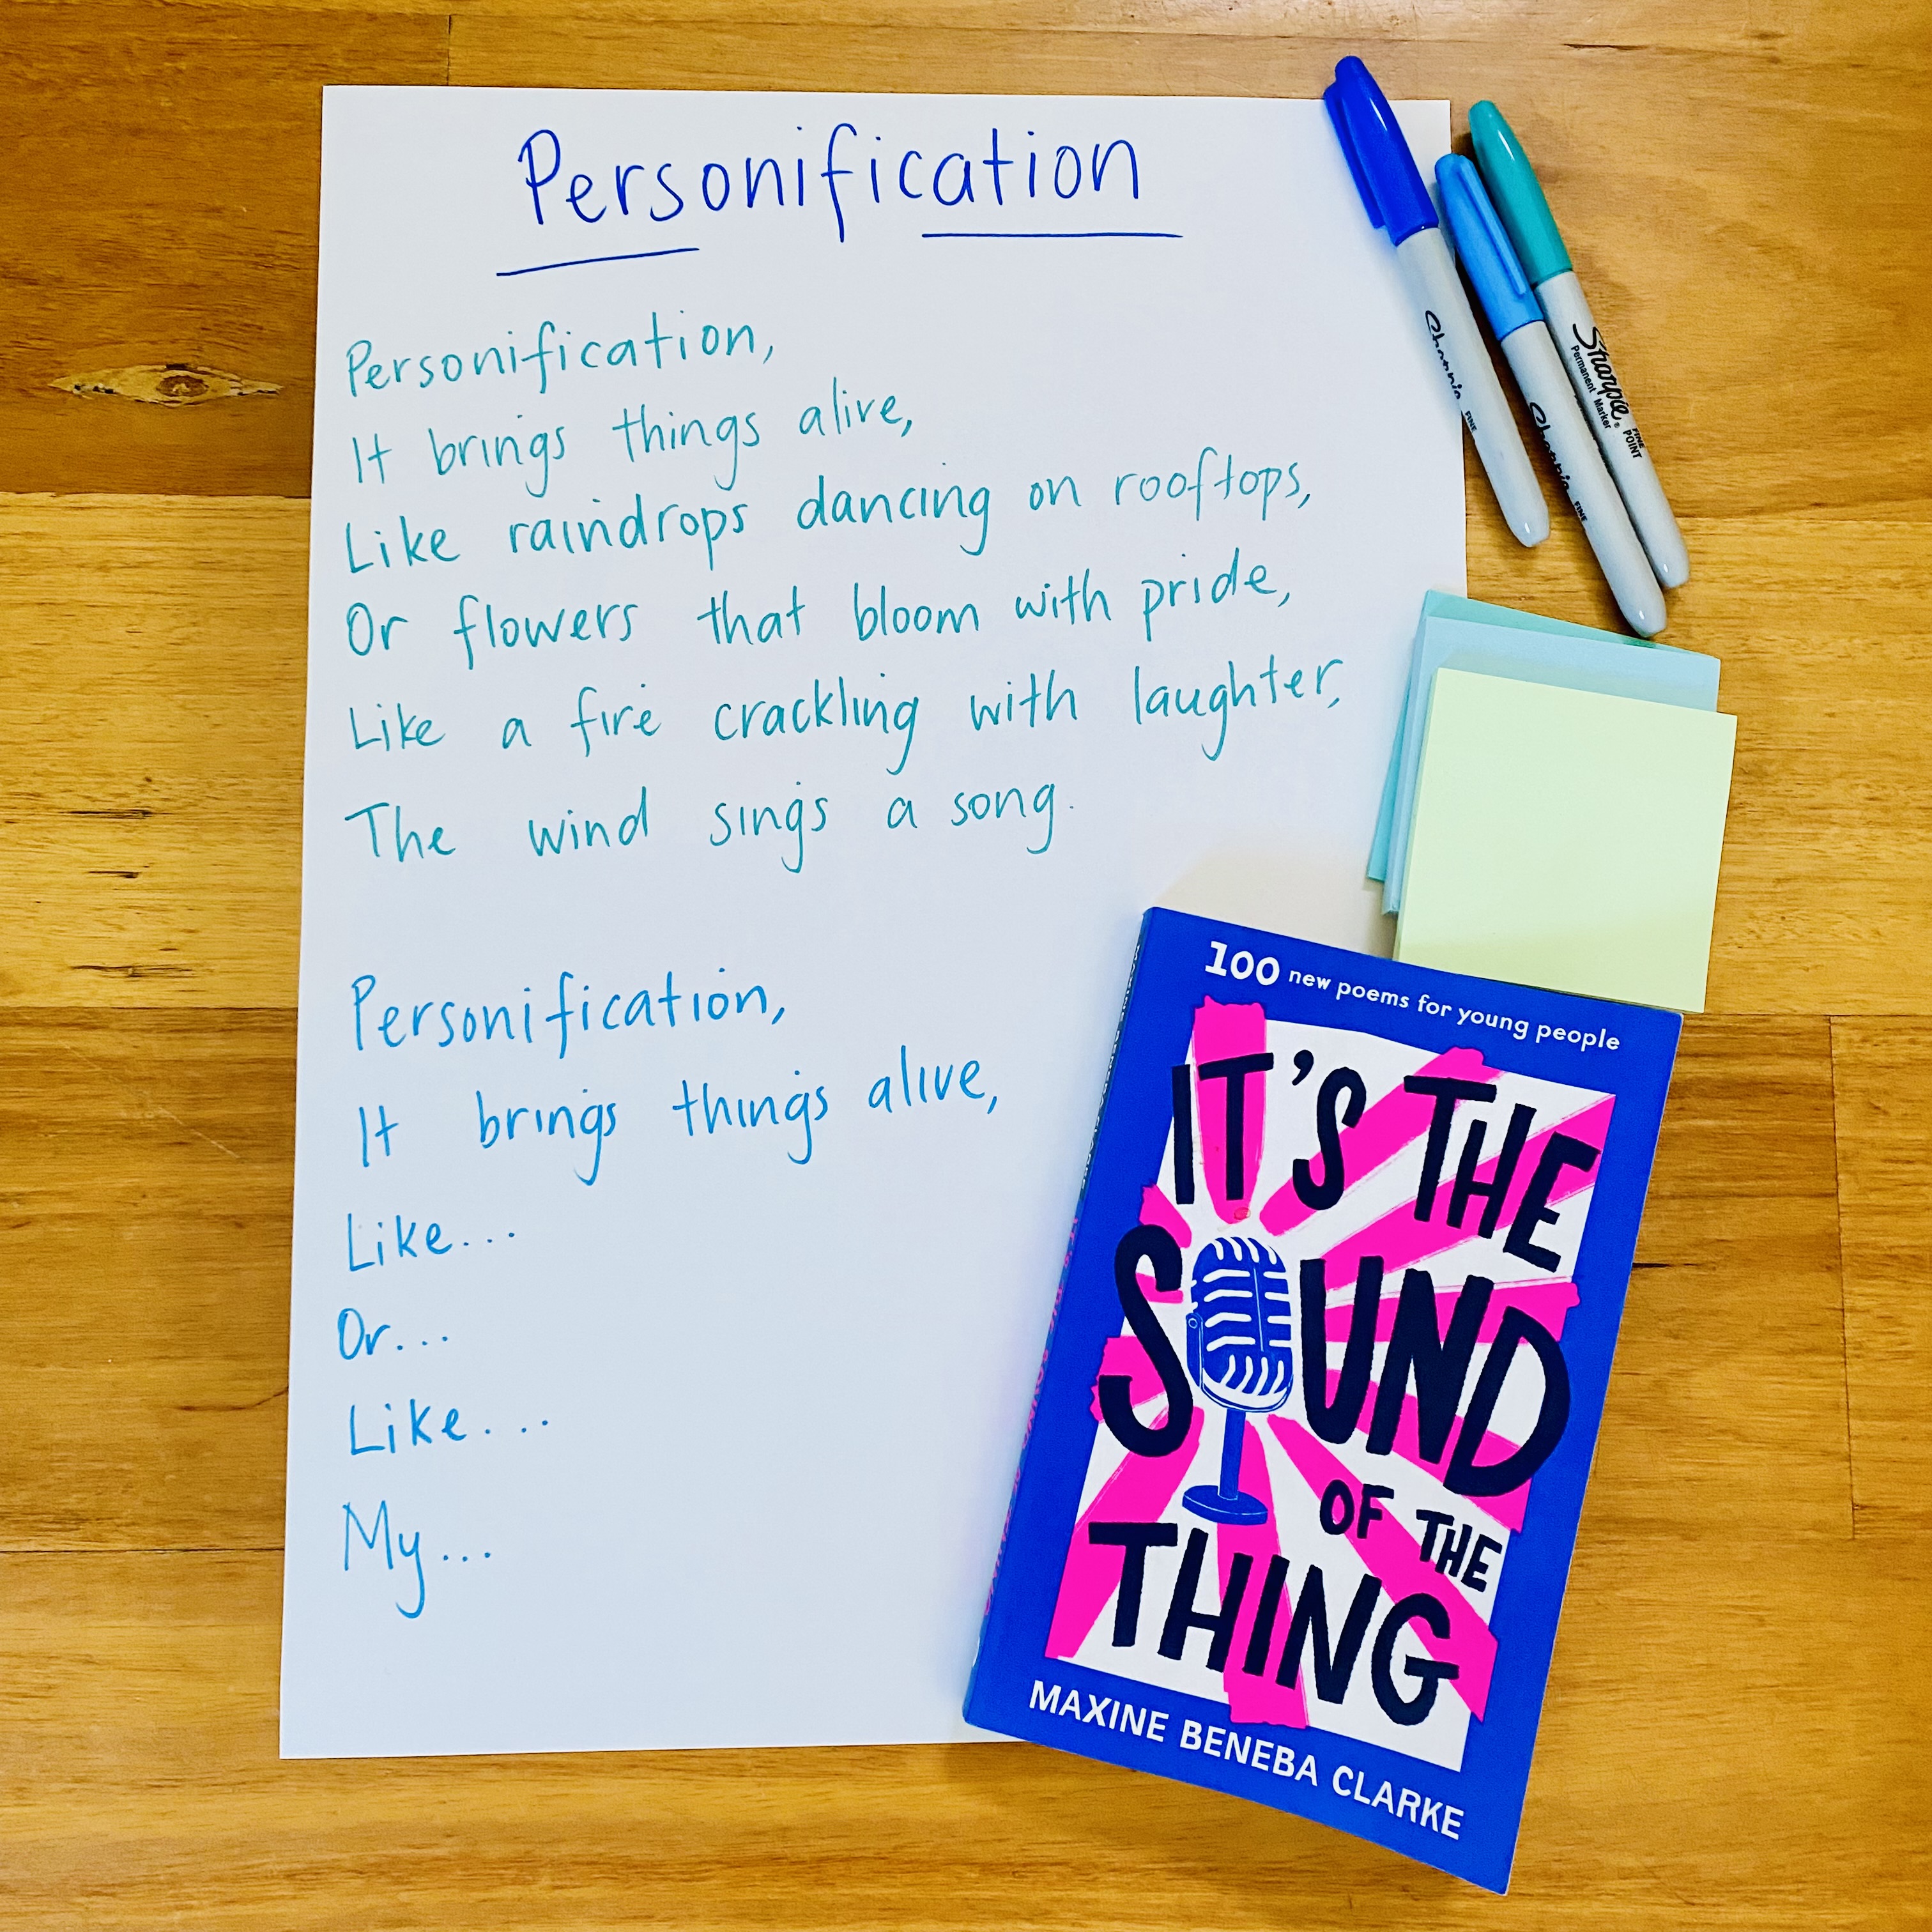 Personification
Personification,
It brings things alive,
Like raindrops dancing on rooftops,
Or flowers that bloom with pride,
Like a fire crackling with laughter,
The wind sings a song.
Personification,
It brings things alive,
Like...
Or...
Like...
My...
Sharpie
FINE
Sharpie
FINE
Sharpie®
Permanent Marker
FINE
POINT
100 new poems for young people
IT'S THE
SOUND
OF THE
THING
MAXINE BENEBA CLARKE